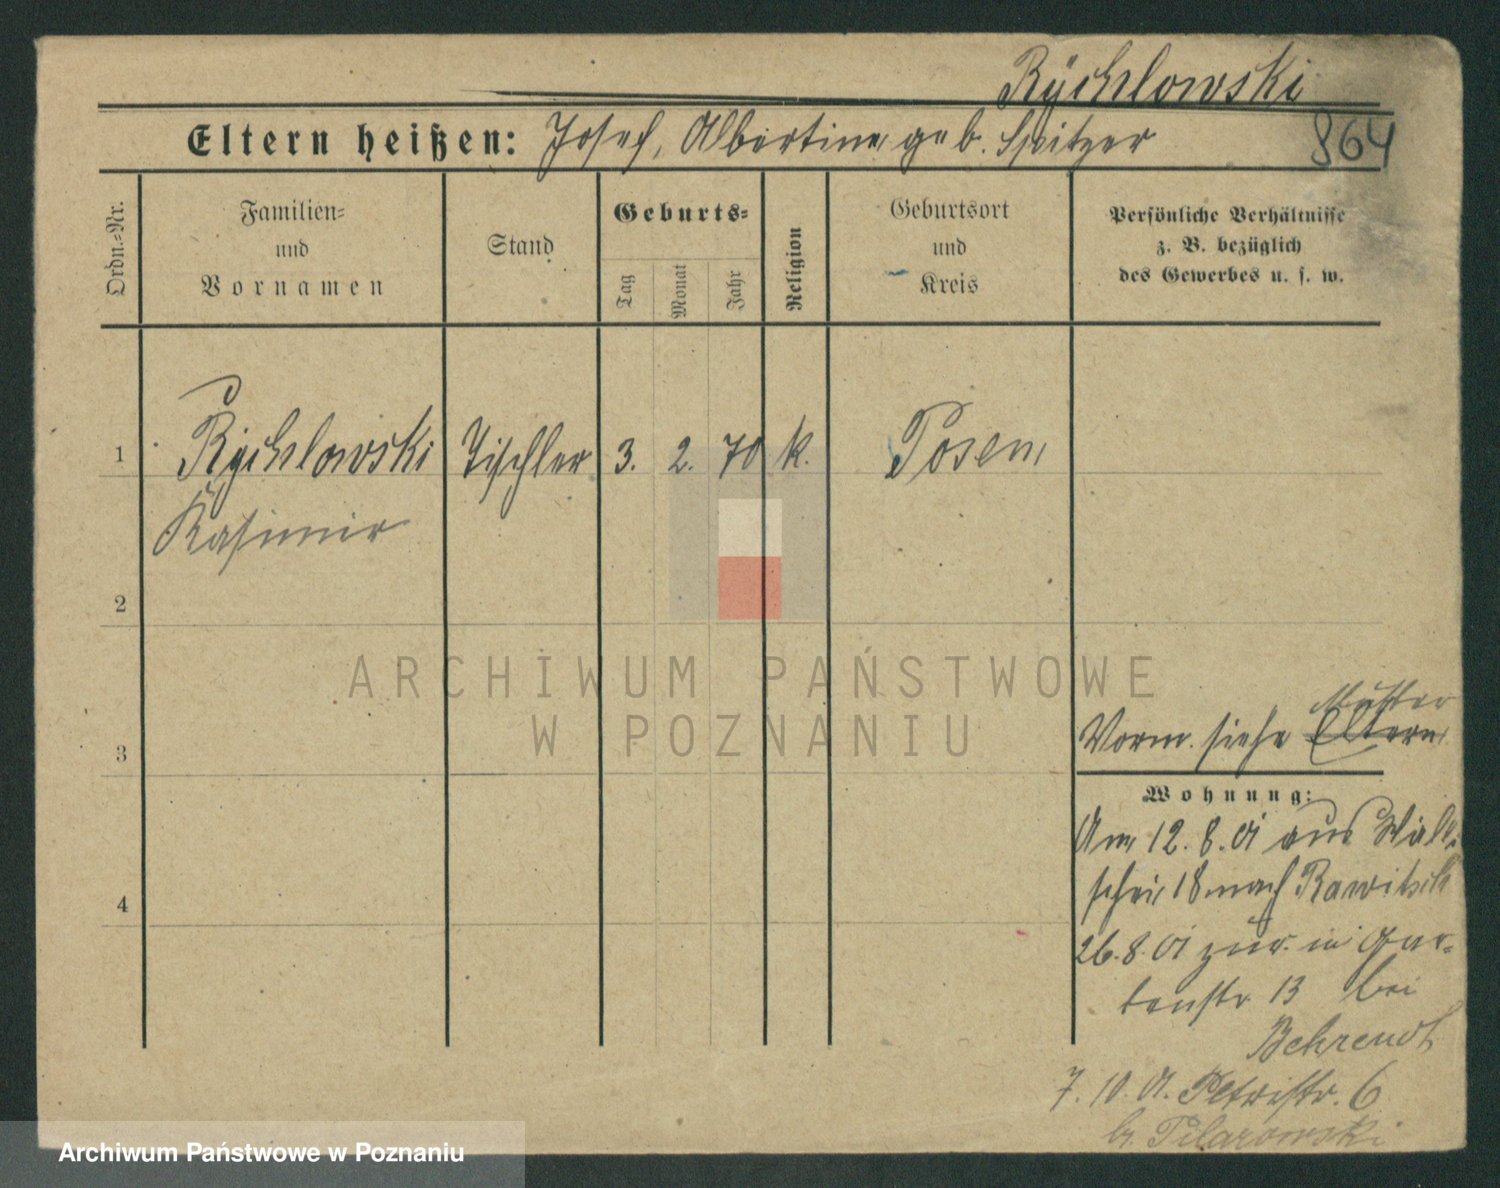 Rÿchlowski
Eltern heißen: Josef, Albertine geb. Spitzer
864
Ordn.=Nr.
Familien=
und
Vornamen
Stand
Geburts=
Tag
Monat
Jahr
Religion
Geburtsort
und
Kreis
Persönliche Verhältnisse
z. B. bezüglich
des Gewerbes u. s. w.
1 Rychlowski Tischler 3. 2. 70 k. Posen
Kasimir
2
ARCHIWUM PAŃSTWOWE
W POZNANIU
Mutter
3 Vorm. siehe Eltern
Wohnung:
Am 12.8.01 aus Walli
schei 18 nach Rawitsch
4
26.8.01 zur. in Gar-
tenstr 13 bei
Behrendt
7.10.01. Petristr. 6
b. Pilarowski
Archiwum Państwowe w Poznaniu